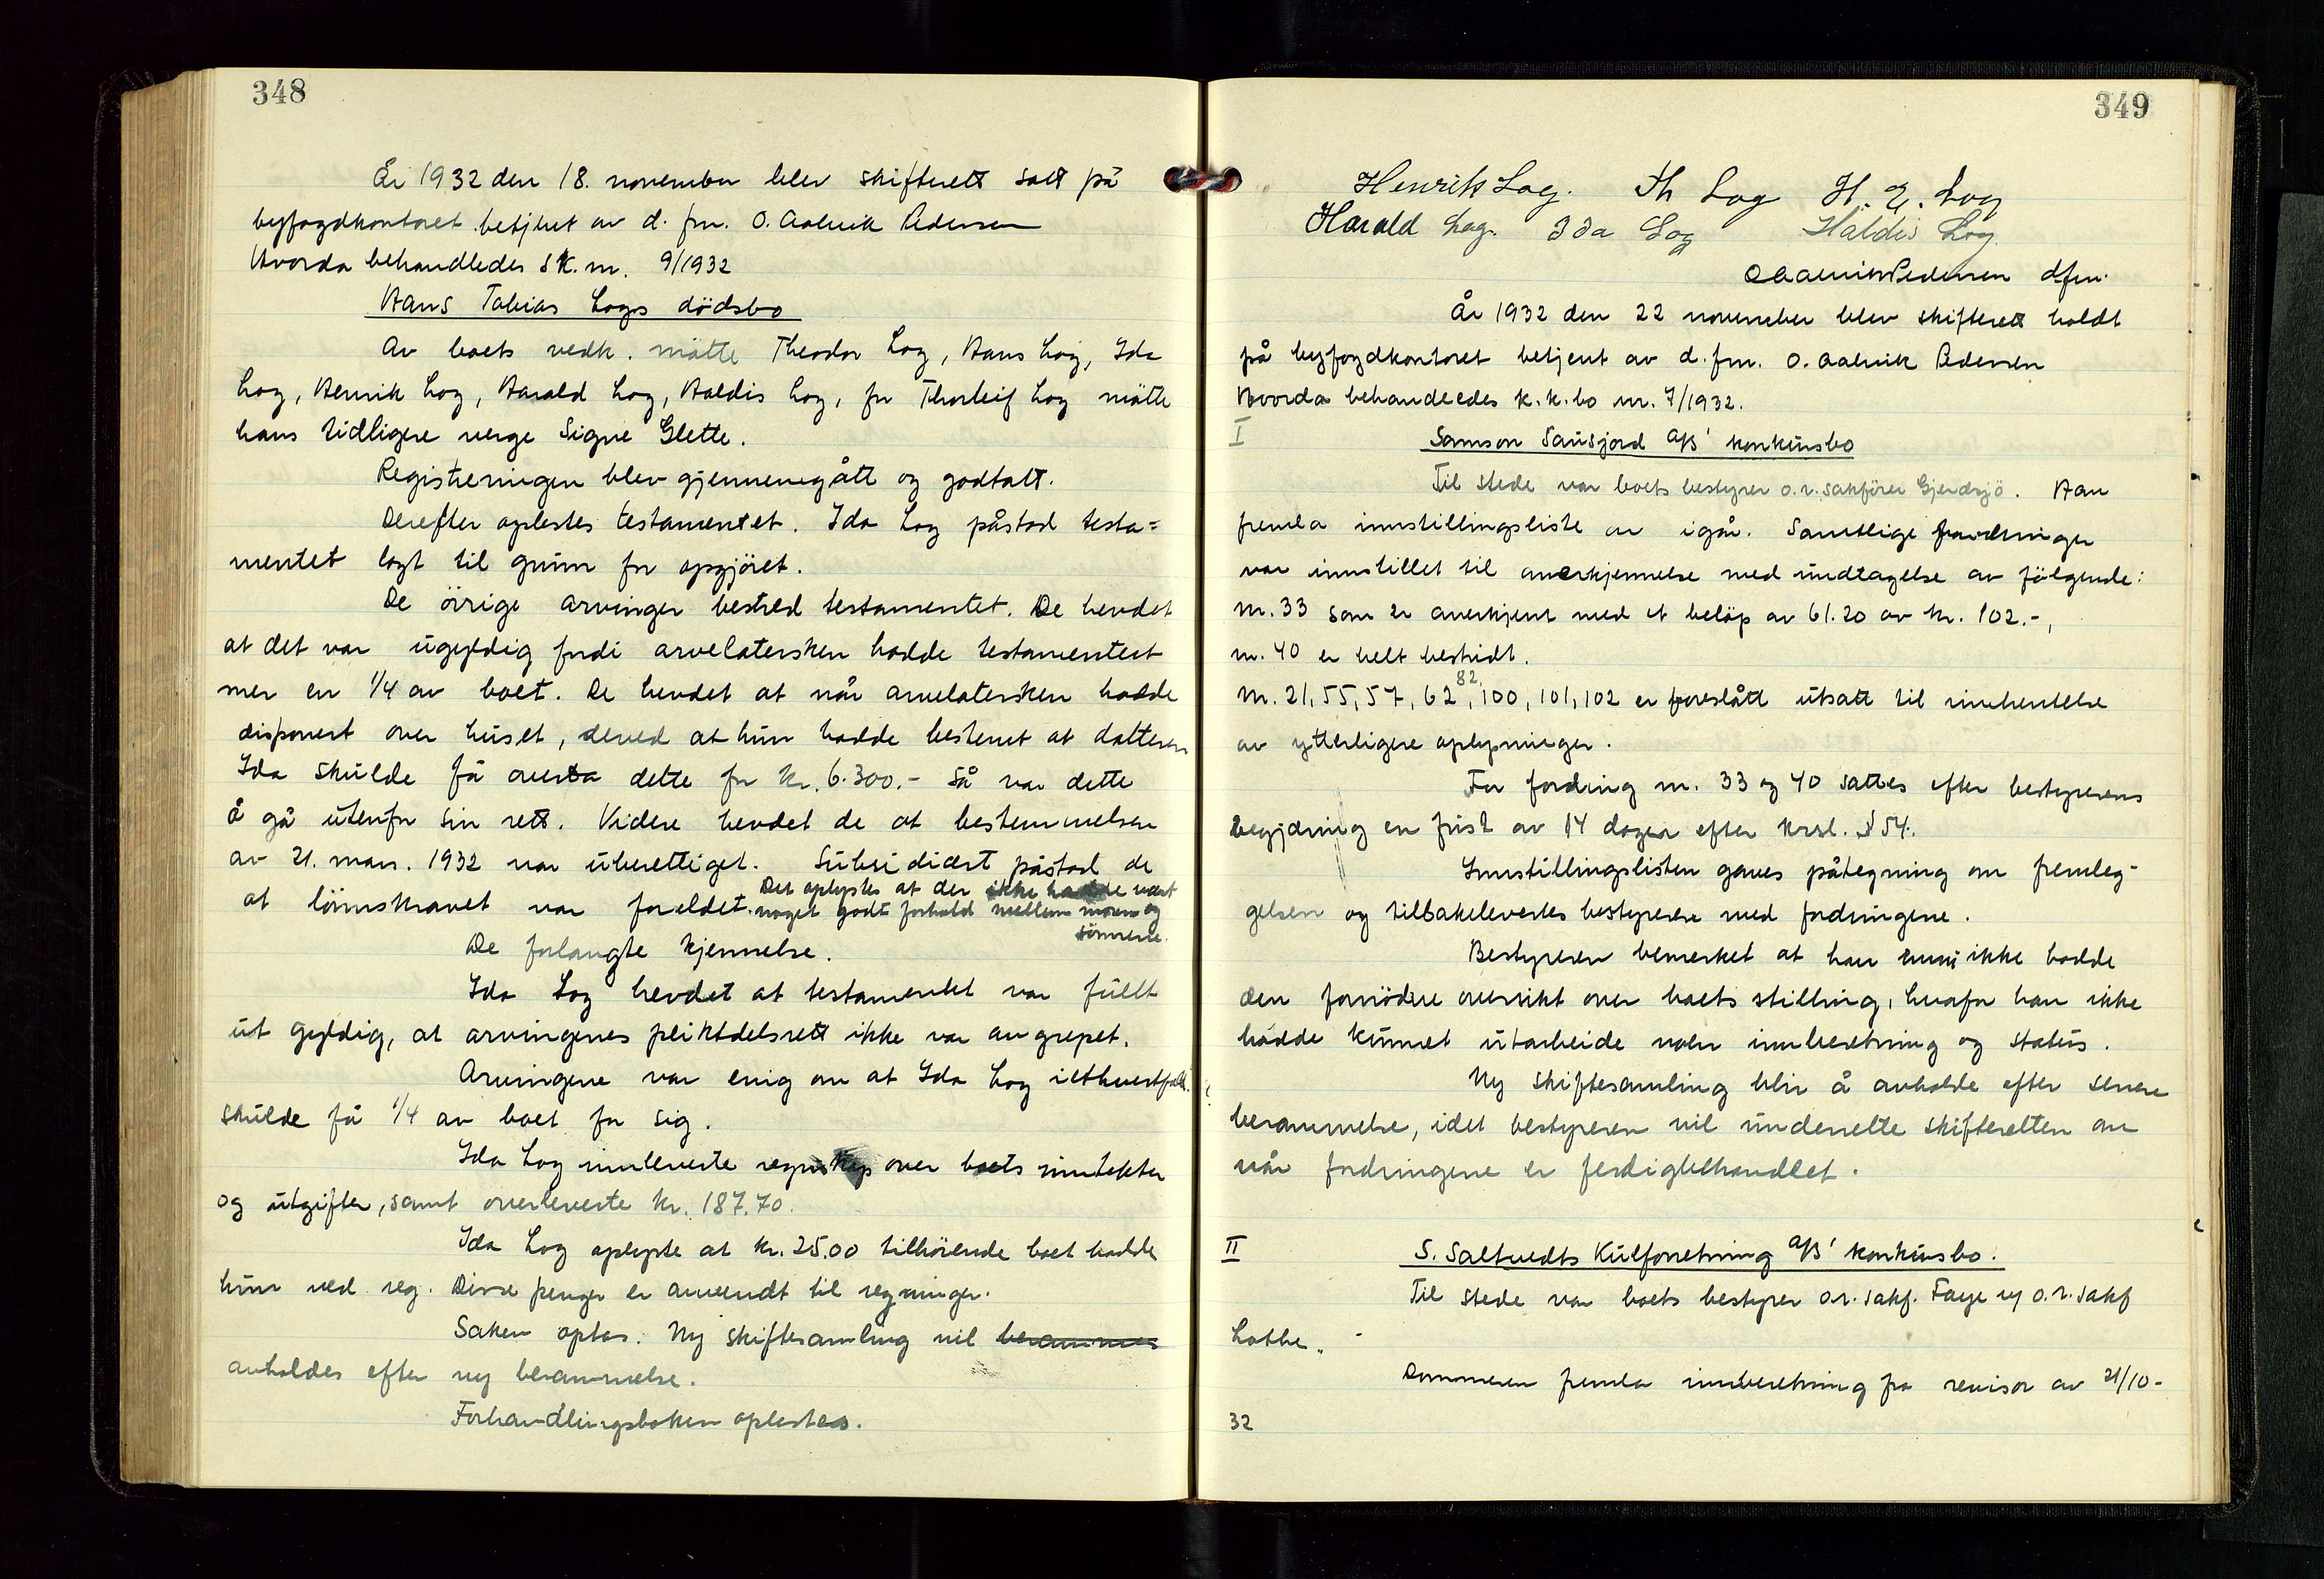 348
År 1932 den 18. november blev skifterett satt på
byfogdkontoret betjent av d. fm. O. Aalvik Pedersen
Hvorda behandledes sk. nr. 9/1932
Hans Tobias Logs dödsbo
Av boets vedk. mötte Theodor Log, Hans Log, Ida
Log, Henrik Log, Harald Log, Haldis Log, for Thorleif Log mötte
hans tidligere verge Signe Glette.
Registreringen blev gjennemgått og godtatt.
Derefter oplestes testamentet. Ida Log påstod testa=
mentet lagt til grunn for opgjöret.
De övrige arvinger bestred testamentet. De hevdet
at det var ugyldig fordi arvelatersken hadde testamentert
mer en 1/4 av boet. De hevdet at når arvelatersken hadde
disponert over huset, derved at hun hadde bestemt at datteren
Ida skulde få overta dette for kr. 6.300.- så var dette
å gå utenfor sin rett. Videre hevdet de at bestemmelsen
av 21. mars. 1932 var uberettiget. Subsidiært påstod de
at lönnskravet var foreldet. Det oplystes at der ikke hadde vært
noget godt forhold mellem moren og
sönnene.
De forlangte kjennelse.
Ida Log hevdet at testamentet var fullt
ut gyldig, at arvingenes pliktdelsrett ikke var angrepet.
Arvingene var enig om at Ida Log iethvertfall
skulde få 1/4 av boet for sig.
Ida Log innleverte regnskap over boets inntekter
og utgifter, samt overleverte kr. 187.70.
Ida Log oplyste at kr. 25.00 tilhörende boet hadde
hun ved reg. Disse penger er anvendt til regninger.
Saken optas. Ny skiftesamling vil berammes
avholdes efter ny berammelse.
Forhandlingsboken oplestes.
349
Henrik Log. Th Log H. E. Log
Harald Log. Ida Log Haldis Log
O Aalvik Pedersen dfm.
År 1932 den 22 november blev skifterett holdt
på byfogdkontoret betjent av d. fm. O. Aalvik Pedersen
Hvorda behandledes k.k.bo nr. 7/1932.
I
Samson Sausjord A/S' konkursbo
Til stede var boets bestyrer o.r.sakförer Gjerdsjö. Han
fremla innstillingsliste av igår. Samtlige fordringer
var innstillet til anerkjennelse med undtagelse av fölgende:
nr. 33 som er anerkjent med et belöp av 61.20 av kr. 102.-,
nr. 40 er helt bestridt.
nr. 21, 55, 57, 62, 82, 100, 101, 102 er foreslått utsatt til innhentelse
av ytterligere oplysninger.
For fordring nr. 33 og 40 sattes efter bestyrerens
begjæring en frist av 14 dager efter krsl. § 54.
Innstillingslisten gaves påtegning om fremleg-
gelsen og tilbakelevertes bestyreren med fordringene.
Bestyreren bemerket at han ennu ikke hadde
den fornödne oversikt over boets stilling, hvorfor han ikke
hadde kunnet utarbeide noen innberetning og status.
Ny skiftesamling blir å avholde efter senere
berammelse, idet bestyreren vil underrette skifteretten om
når fordringene er ferdigbehandlet.
II
S. Saltvedts Kulforretning A/S' konkursbo.
Til stede var boets bestyrer o.r.sakf. Faye og o.r.sakf
Lothe.
Dommeren fremla innberetning fra revisor av 21/10-
32